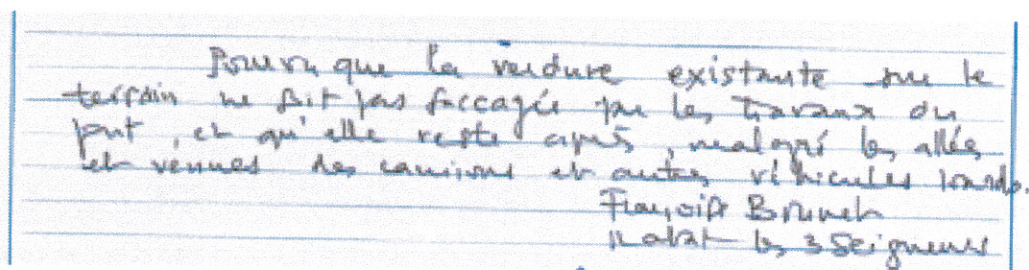 Pourvu que la verdure existante sur le
terrain ne soit pas saccagée par les travaux du
pont, et qu'elle reste après, malgré les allées
et venues des camions et autres véhicules lourds.
Françoise Brunet
les 3 Seigneurs